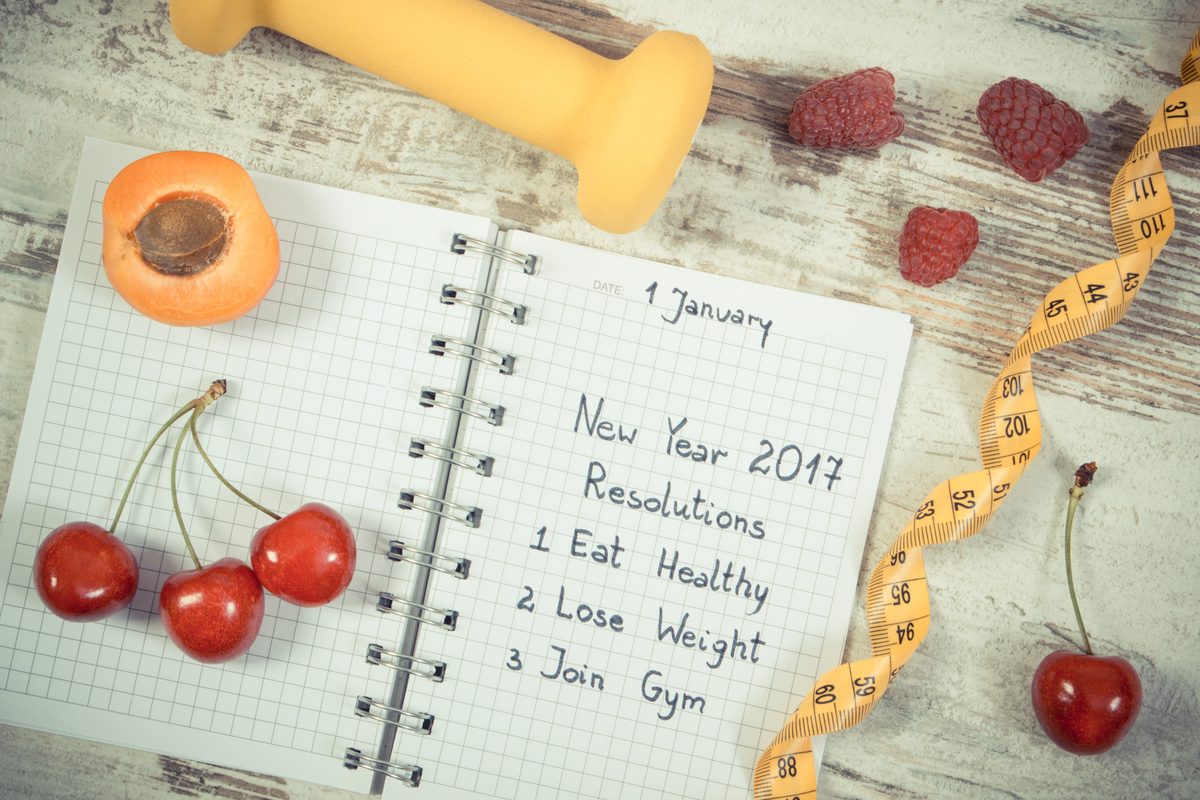 DATE: 1 January
New Year 2017
Resolutions
1 Eat Healthy
2 Lose Weight
3 Join Gym
37
111
110
43
44
45
103
102
101
51
52
53
96
95
94
59
60
88